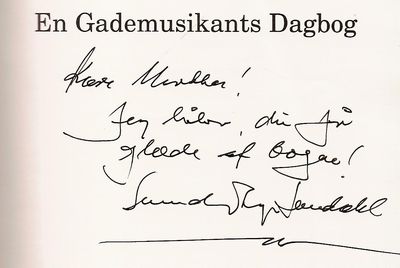 En Gademusikants Dagbog
Kære
Jeg håber, du får
glæde af bogen!